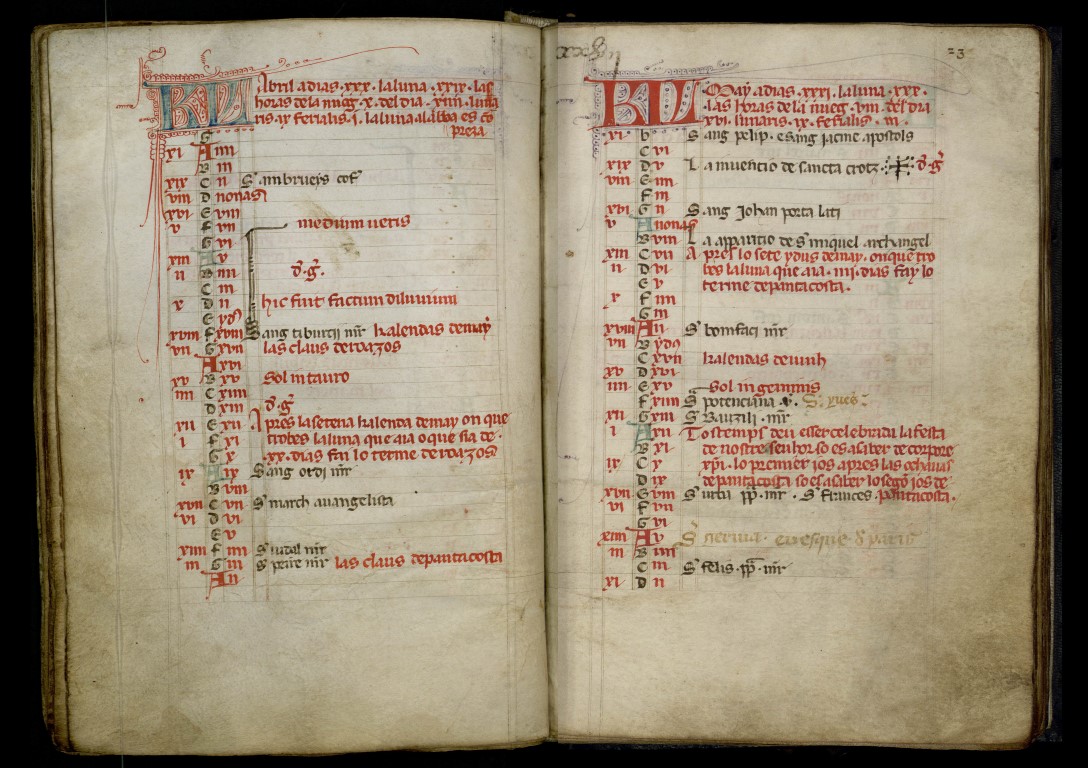 KL Abril a dias .xxx. la luna .xxix. las
horas de la nueg .x. del dia .xiiii. luna
ris .ix. ferialis .i. la luna al alba es co
preza
G
xi A iiii
B iii
xix C ii S ambrueys cof
viii D nonas
xvi E viii
v F vii medium ueris
G vi
xiii A v
ii B iiii d. g̃.
C iii
x D ii hic fuit factum diluuium
E yd9
xviii F xviii Sang tiburcii mr̃ kalendas de may
vii G xvii las claus de rozazos
A xvi
xv B xv Sol in tauro
iiii C xiiii
D xiii d. g̃
xii E xii Apres la setena kalenda de may on que
i F xi trobes la luna que aia o que sia de
G x .xx. dias fai lo terme de rozazos
ix A ix Sang ordi mr̃
B viii
xvii C vii S march auangelista
vi D vi
E v
xiiii F iiii S uidal mr̃
iii G iii S peire mr̃ las claus de pantacosta
A ii
23
KL May a dias .xxxi. la luna .xxx.
las horas de la nueg .viii. del dia
xvi. lunaris .ix. ferialis .iii.
xi b Sang pelip. e sang jacme apostols
C vi
xix D v La inuencio de sancta crotz d. g̃
viii E iiii
F iii
xvi G ii Sang Johan porta lati
v A nonas
B viii La apparitio de S miquel archangel
xiii C vii Apres lo sete ydus de may. on que tro
ii D vi bes la luna que aia .iiii. dias fay lo
E v terme de pantacosta.
x F iiii
G iii
xviii A ii S bonifaci mr̃
vii B yd9
C xvii kalendas de iunh
xv D xvi
iiii E xv Sol in geminis
F xiiii S potenciana v. S. yues
xii G xiii S Bauzili mr̃
i A xii Tostemps deu esser celebrada la festa
B xi de nostre senhor so es asaber de corpore
ix C x xp̃i. lo premier jos apres las ochauas
D ix de pantacosta so es asaber lo segon jos de
xvii G viii S urba pp̃. mr̃. S frances. pantacosta.
vi F vii
G vi
xiiii A v S germa. euesque d paris
iii B iiii
C iii S felis. pp̃. mr̃
xi D ii